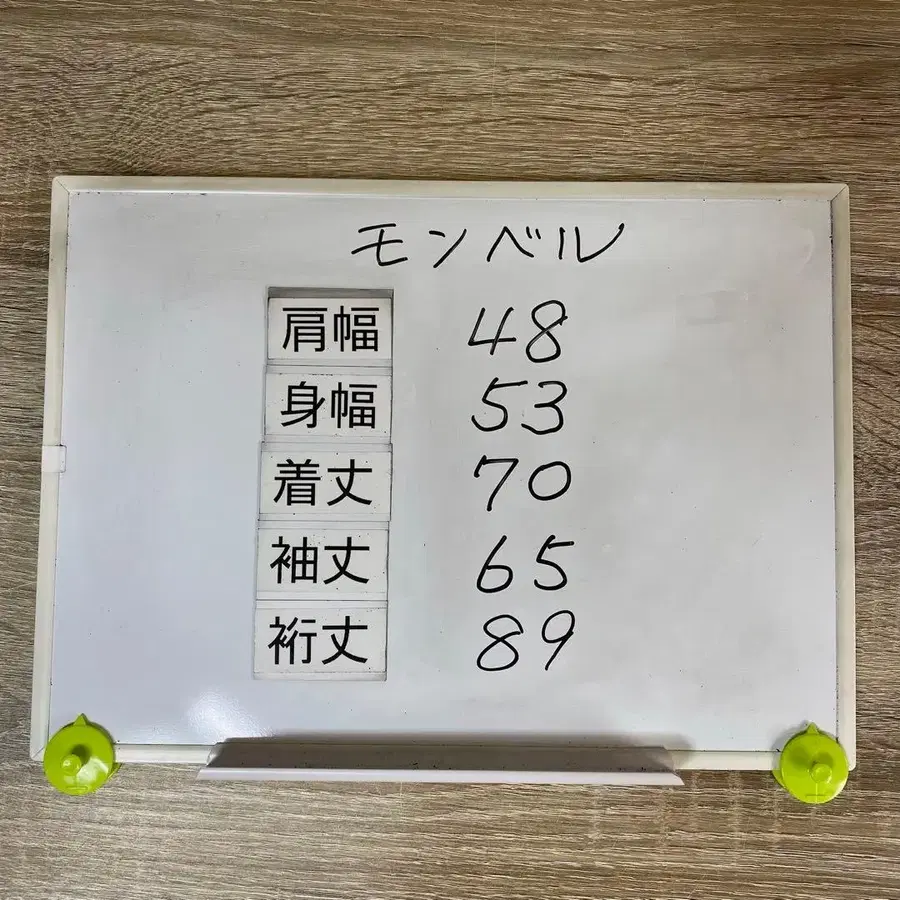 モンベル
肩幅 48
身幅 53
着丈 70
袖丈 65
裄丈 89